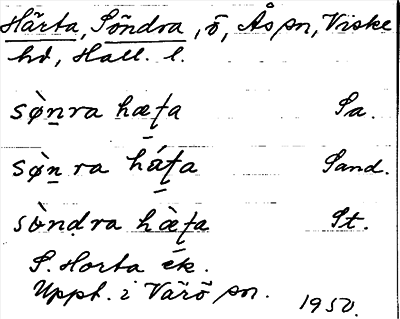 Härta, Söndra, ö, Ås sn, Viske
hd, Hall. l.
sø̀n̠ra hæƫa Sa.
sø̀n̠ra háƫa Sand.
sònḍra hæ̀ƫa St.
S. Horta ek.
Uppt. i Värö sn. 1950.